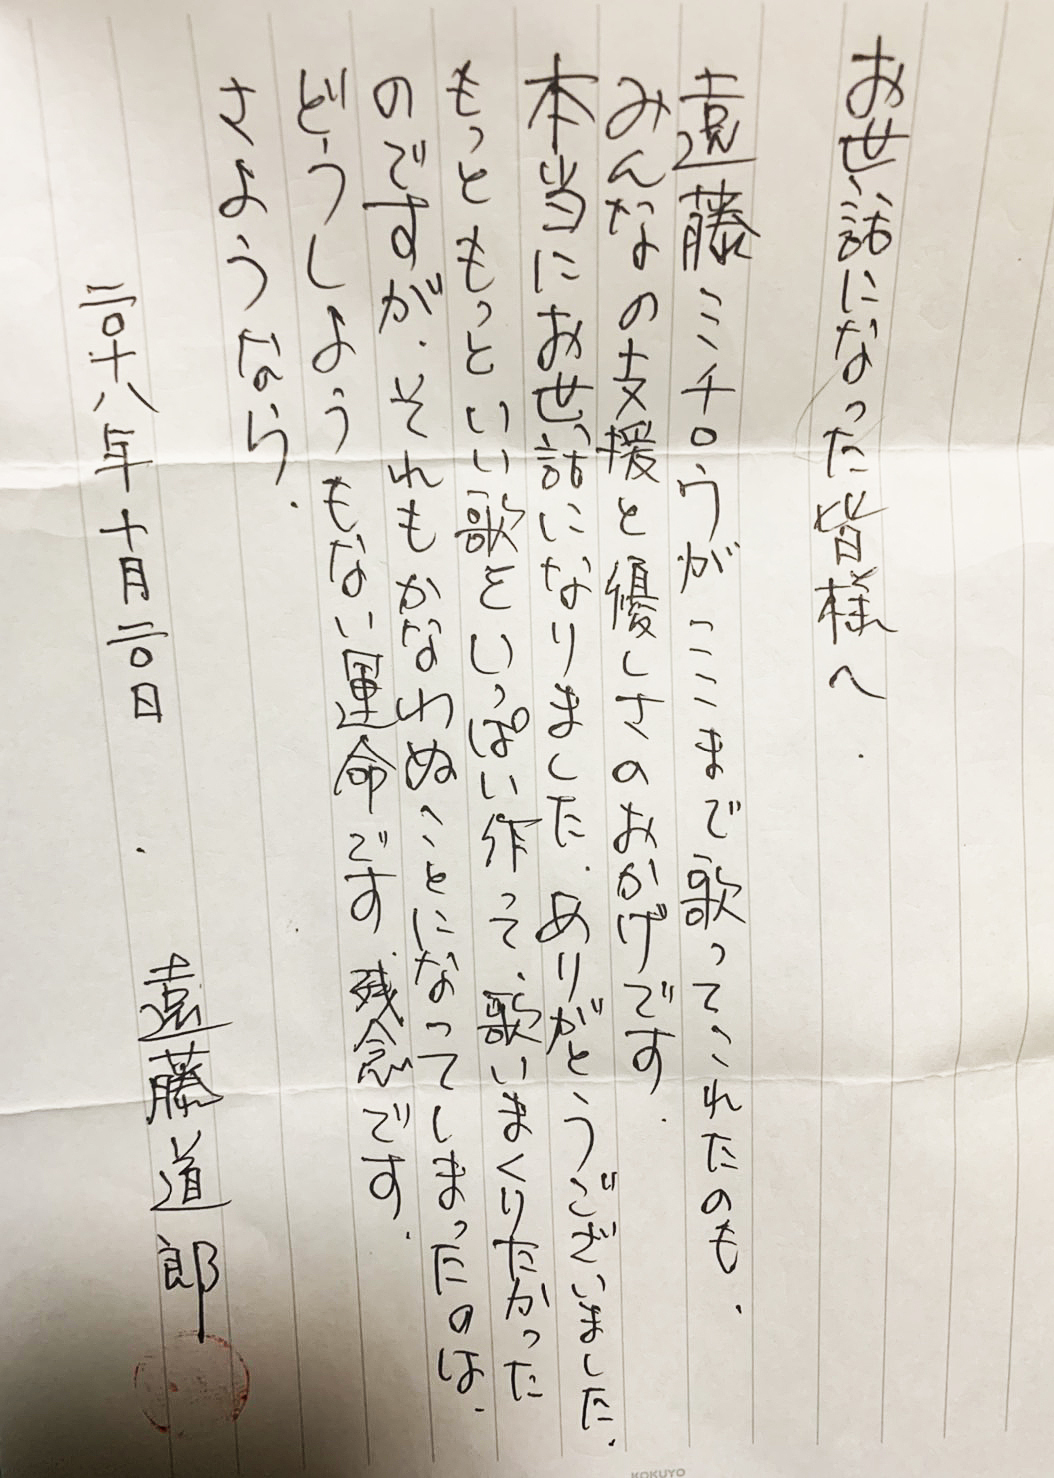 お世話になった皆様へ.
遠藤ミチロウがここまで歌ってこれたのも.
みんなの支援と優しさのおかげです.
本当にお世話になりました.ありがとうございました.
もっともっといい歌をいっぱい作って、歌いまくりたかった
のですが.それもかなわぬことになってしまったのは.
どうしようもない運命です 残念です.
さようなら.
二〇十八年十月二〇日.
遠藤道郎
KOKUYO